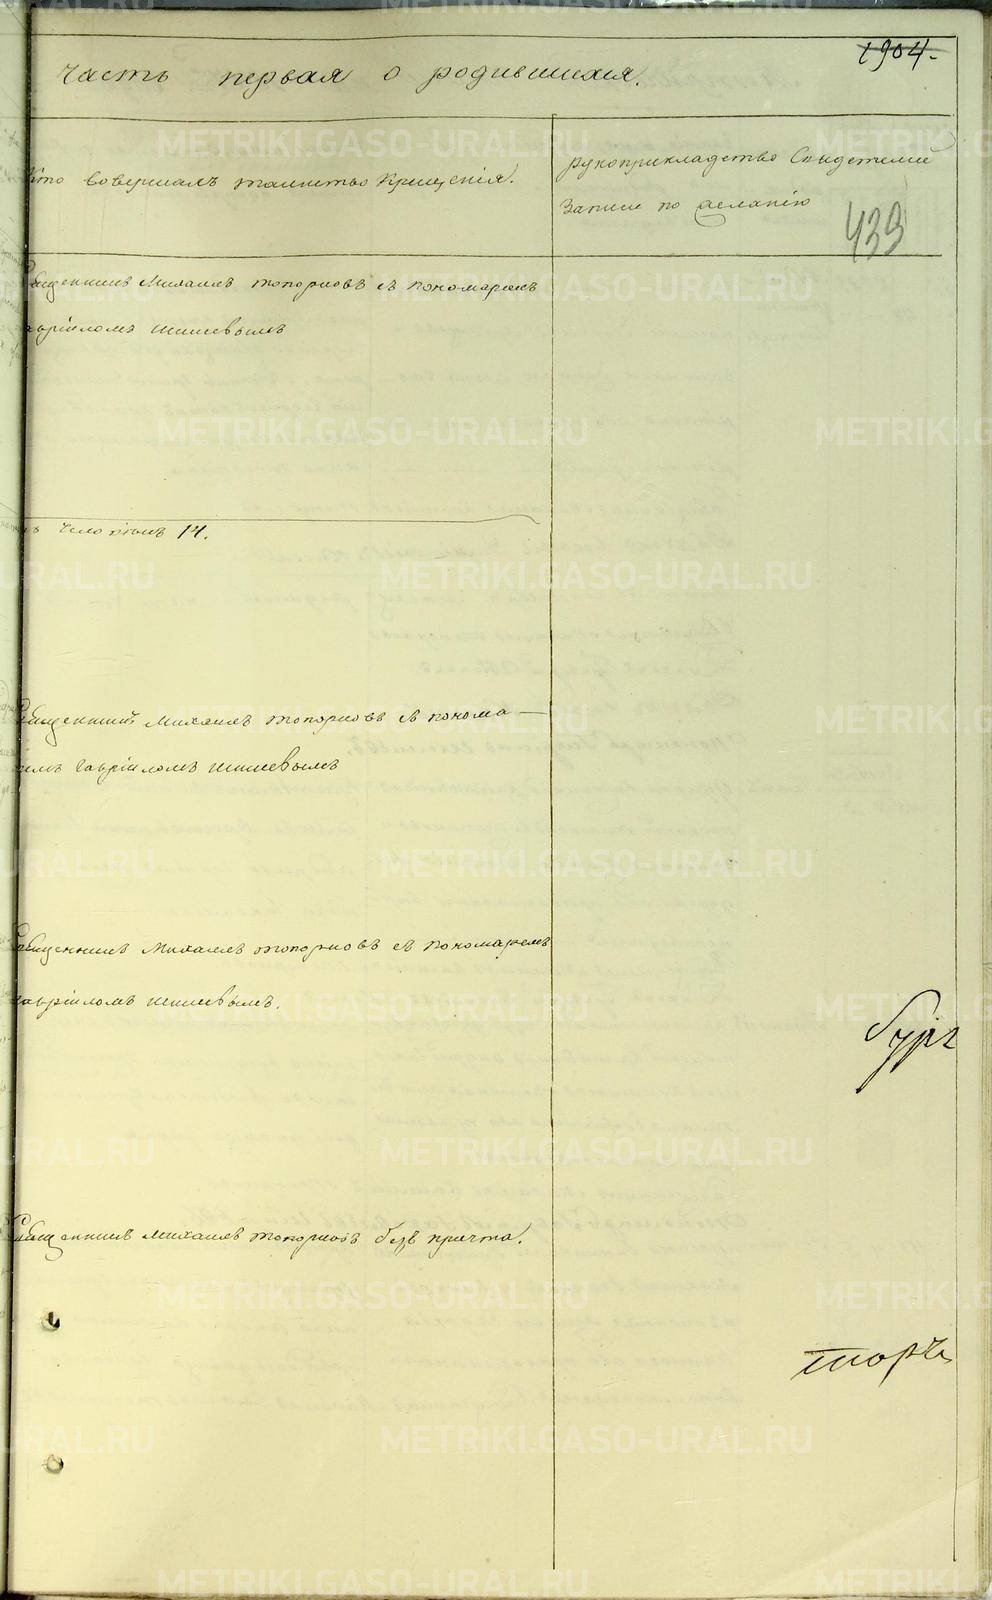 1904.
часть первая о родившихся.
Кто совершалъ таинство крещенія.
рукоприкладство свидетелей
записи по желанію
439
Священникъ Михаилъ Топорковъ съ пономаремъ
Гавріиломъ Шишевымъ
14.
Священникъ Михаилъ Топорковъ съ понома-
ремъ Гавріиломъ Шишевымъ
Священникъ Михаилъ Топорковъ съ пономаремъ
Гавріиломъ Шишевымъ.
Священникъ Михаилъ Топорковъ безъ причта.
METRIKI.GASO-URAL.RU